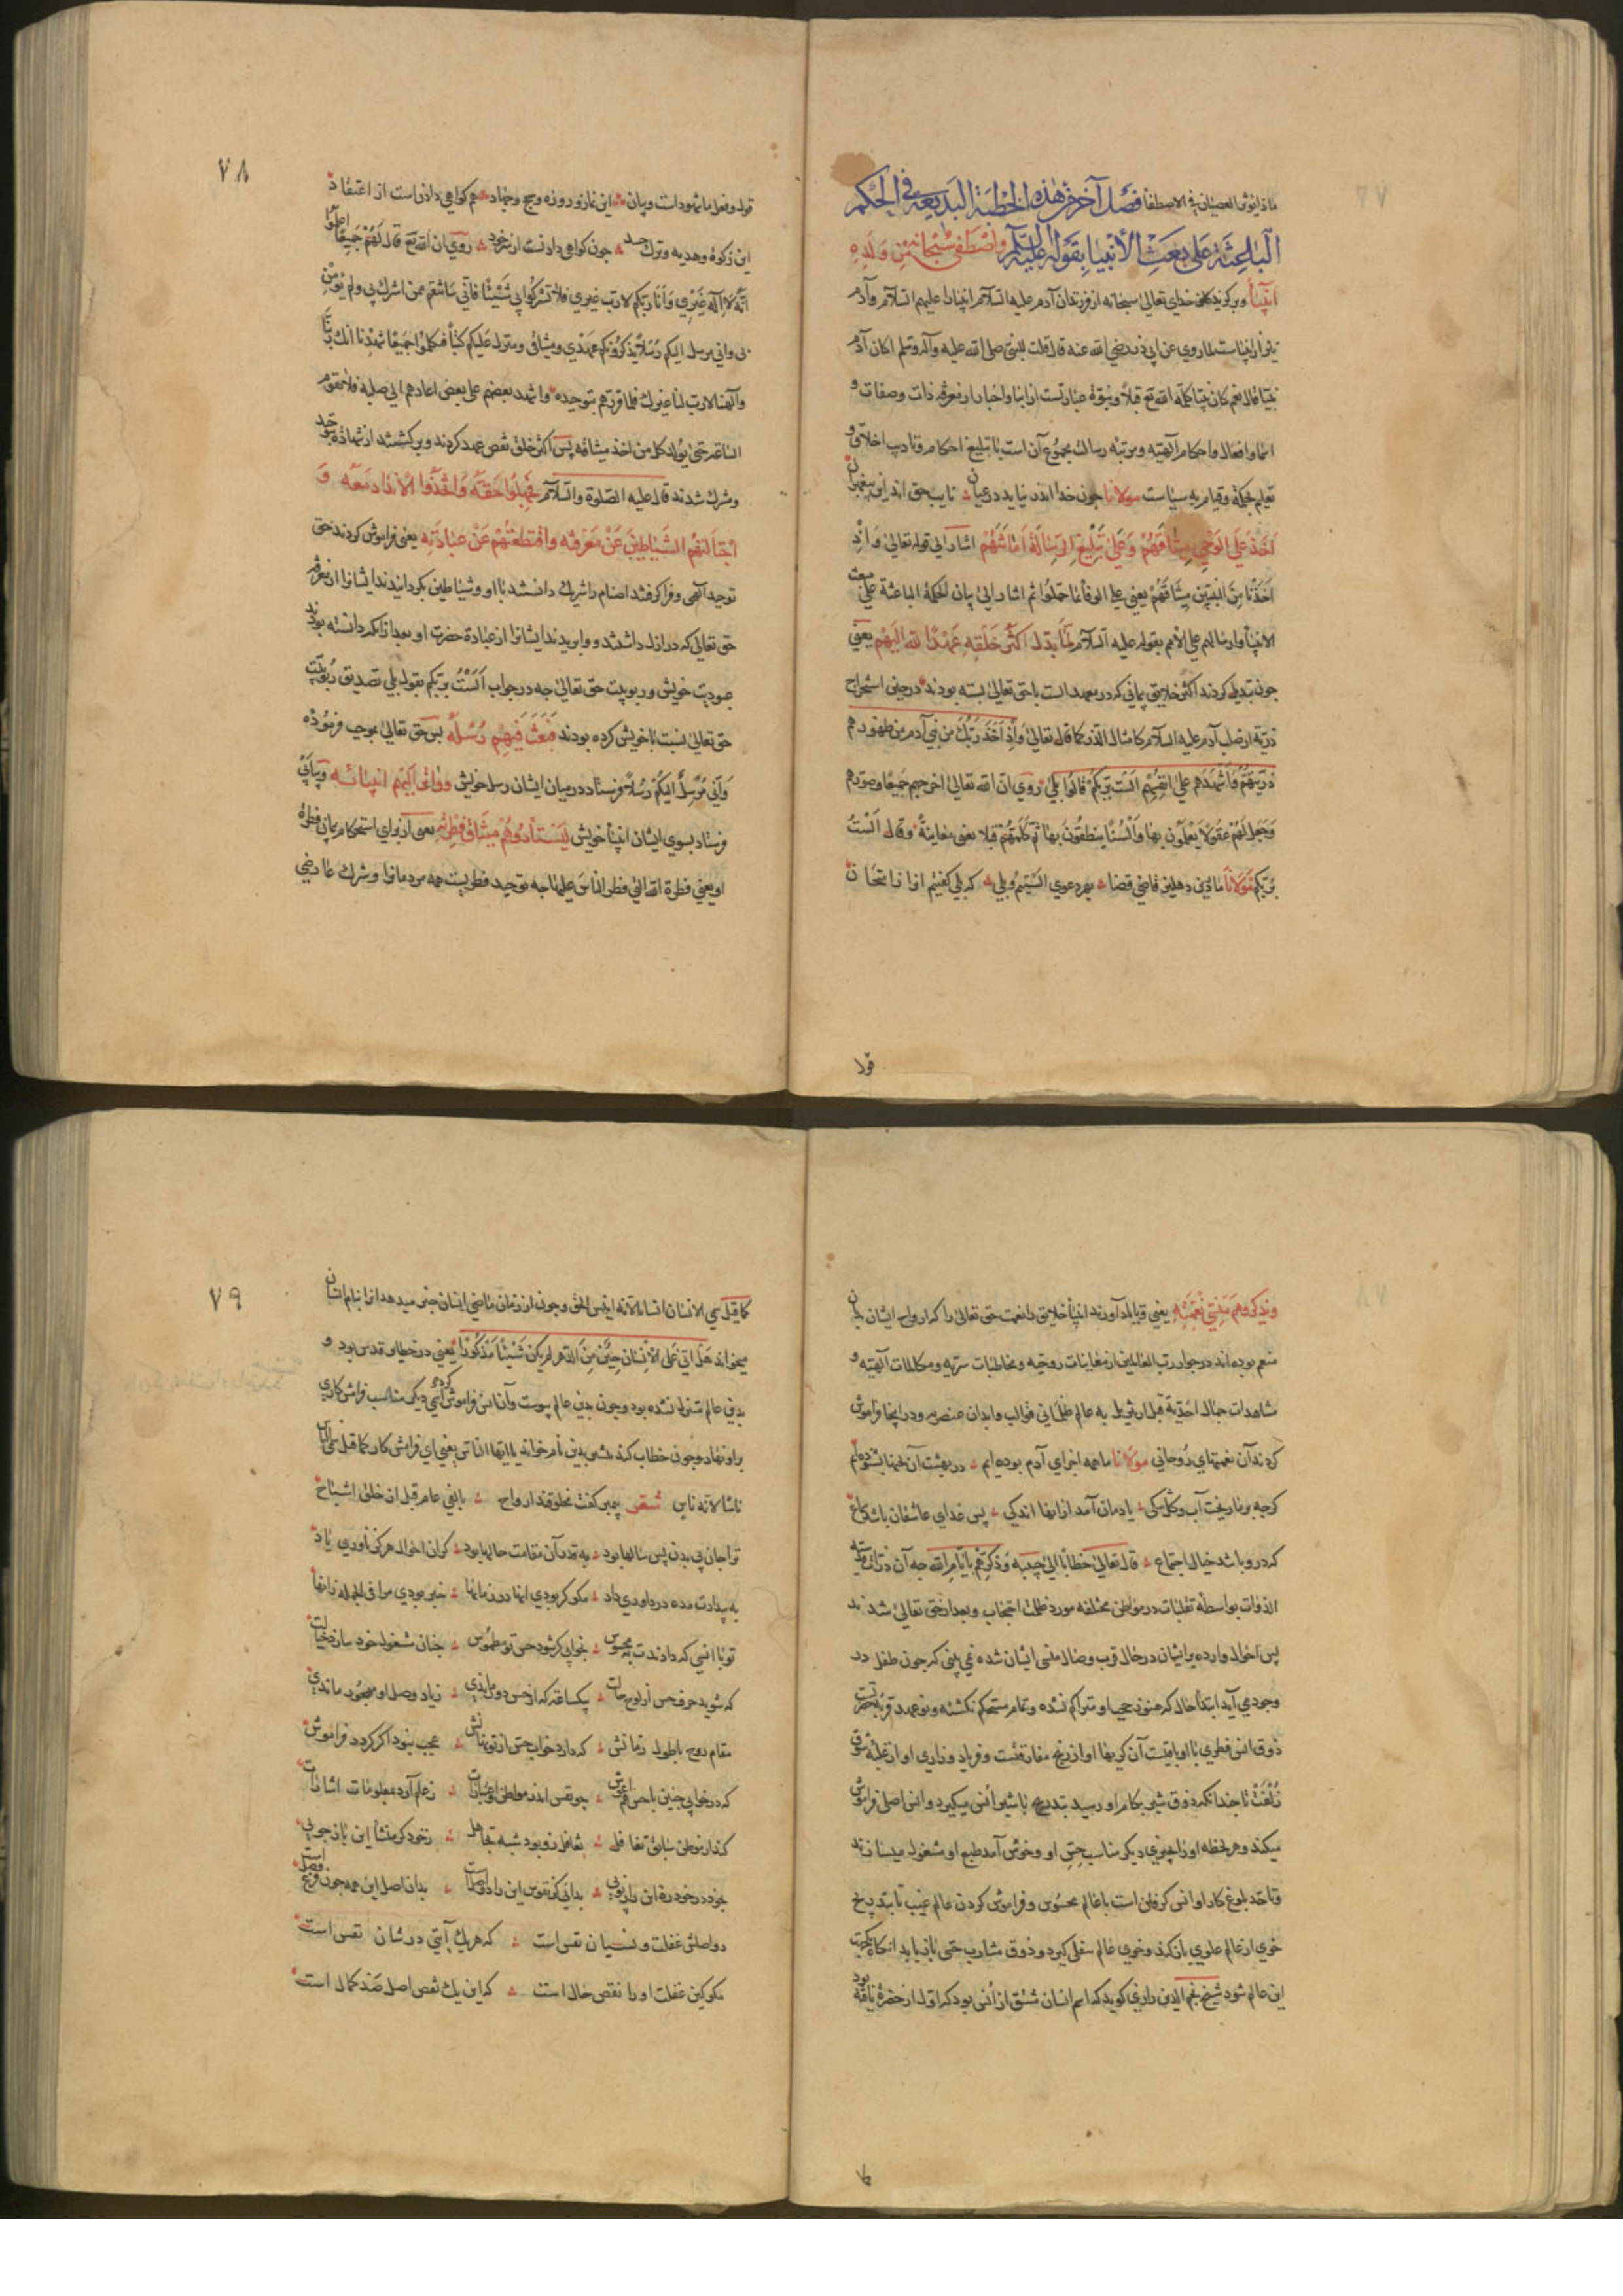 ماذا یؤثر العصیان فی الاصطفا فصل آخر من هذه الخطبة البدیعة فی الحکم
الباعثة علی بعث الأنبیا بقوله علیه السلام واصطفی سبحانه من ولده
انبیأ وبرکزید خدای تعالی سبحانه از فرزندان آدم علیه السلام انبیا را علیهم السلام وآدم
نیز از انبیاست لما روی عن ابی ذر رضی الله عنه قال قلت للنبی صلی الله علیه وآله وسلم اکان آدم
نبیا قال نعم کان نبیا کلمه الله تع قبلا ونبوة عبارتست از انبا واخبار از معرفة ذات وصفات و
اسما وافعال واحکام آلهیه ومرتبه رسالت مجموع آن است با تبلیغ احکام وتادیب اخلاق و
تعلیم بحکمة وقیام به سیاست مولانا چون خدا اندر نیاید در عیان نایب حق اند این پیغمبران
اخذ علی الوحی میثاقهم وعلی تبلیغ الرسالة امانتهم اشار الی قوله تعالی واذ
اخذنا من النبیین میثاقهم یعنی علی الوفا بما حملوا ثم اشار الی بیان الحکمة الباعثة علی بعث
الانبیأ وارسالهم علی الامم بقوله علیه السلام لما بدل اکثر خلقه عهد الله الیهم یعنی
چون تبدیل کردند اکثر خلایق پیمانی که در معهد الست با حق تعالی بسته بودند در حین استخراج
ذریة از صلب آدم علیه السلام کامثال الذر کما قال تعالی واذ اخذ ربک من بنی آدم من ظهورهم
ذریتهم واشهدهم علی انفسهم الست بربکم قالوا بلی روی ان الله تعالی اخرجهم جمیعا وصورهم
وجعل لهم عقولا یعلمون بها والسنا ینطقون بها ثم کلمهم قبلا یعنی معاینة وقال الست
بربکم مولانا ما درین دهلیز قاضی قضا بهر دعوی الستیم وبلی که بلی کفتیم انرا ز امتحان
قول
۷۸
قول وفعل ما شهودات وبیان این نماز وروزه وحج وجهاد هم کواهی دادن است از اعتقاد
این زکوة وهدیه وترک حسد چون کواهی دادنست از سر خود روی ان الله تع قال لهم جمیعا اعلموا
انه لا اله غیری وانا ربکم لا رب غیری فلا تشرکوا بی شیئا فانی سانتقم ممن اشرک بی ولم یؤمن
بی وانی مرسل الیکم رسلا یذکرونکم عهدی ومیثاقی ومنزل علیکم کتبا فکلموا جمیعا شهدنا انک ربنا
وآلهنا لا رب لنا غیرک فلما قررهم بتوحیده واشهد بعضهم علی بعض اعادهم الی صلبه فلا تقوم
الساعة حتی یولد کل من اخذ میثاقه پس اکثر خلق نقض عهد کردند وبرکشتند از شهادة بتوحید
ومشرک شدند قال علیه الصلوة والسلام فجهلوا حقه واتخذوا الانداد معه و
اجتالتهم الشیاطین عن معرفته واقتطعتهم عن عبادته یعنی فراموش کردند حق
توحید آلهی وفرا کرفتند اصنام را شریک دانستند با او وشیاطین بکردانیدند ایشانرا از معرفة
حق تعالی که در ازل داشتند ووابریدند ایشانرا از عبادة حضرت او بعد از انکه دانسته بودند
عبودیت خویش وربوبیت حق تعالی چه در جواب الست بربکم بقول بلی تصدیق ربوبیت
حق تعالی نسبت با خویش کرده بودند فبعث فیهم رسله پس حق تعالی بموجب فرموده
وانی مرسل الیکم رسلا فرستاد در میان ایشان رسل خویش وواتر الیهم انبیائه وپیاپی
فرستاد بسوی ایشان انبیأ خویش لیستأدوهم میثاق فطرته یعنی از برای استحکام پیمان فطرة
او یعنی فطرة الله التی فطر الناس علیها چه توحید فطریست همه مردمانرا وشرک عارضی
ویذکروهم منسی نعمته یعنی تا یاد آورند انبیأ خلایق را نعمت حق تعالی را که ارواح ایشان بدان
منعم بوده اند در جوار رب العالمین از معاینات روحیه ومخاطبات سریه ومکالمات آلهیه و
مشاهدات جمال احدیة قبل از تنزیل به عالم ظلمانی قوالب وابدان عنصریه ودر اینجا فراموش
کردند آن نعمتهای روحانی مولانا ما همه اجزای آدم بوده ایم در بهشت آن لحنها بشنوده ایم
کرچه بر ما ریخت آب وکل شکی یادمان آمد از انها اندکی پس غدای عاشقان باشد سماع
که درو باشد خیال اجتماع قال تعالی خطابا الی حبیبه وذکرهم بایام الله چه آن ذرات مقدسه
الذوات بواسطه تقلبات در مواطن مختلفه مورد ظلمت احتجاب وبعد از حق تعالی شدند
پس احوال وارده بر ایشان در حال قرب وصال منسی ایشان شده نمی بینی که چون طفل در
وجود می آید ابتدأ حال که هنوز حجب او متراکم نشده وتمام مستحکم نکشته ونو عهد قربه حضرتست
ذوق انس فطری با او باقیست آن کریها او از رنج مفارقتست وفریاد وزاری او از غلبه شوق
زلفت تا چندانکه ذوق شیر بکام او رسید بتدریج با شیر انس میکیرد وانس اصلی فراموش
میکند وهر لحظه او را بچیزی دیکر مناسب حس او وخوش آمد طبع او مشغول میسازند
وتا حد بلوغ کار او انس کرفتن است با عالم محسوس وفراموش کردن عالم غیب تا بتدریج
خوی از عالم علوی باز کند وخوی عالم سفلی کیرد وذوق مشارب حسی باز یابد انکاه یکجهت
این عالم شود شیخ نجم الدین رازی کوید که اسم انسان مشتق از انس بود که اول از حضرة یافته بود
۷۹
کما قیل سمی الانسان انسانا لانه انیس الحق وچون از زمان ماضی انسان خبر میدهد او را بنام انسان
میخواند هل اتی علی الانسان حین من الدهر لم یکن شیئا مذکورا یعنی در حظایر قدس بود و
بدین عالم متنزل نشده بود وچون بدین عالم پیوست وآن انس فراموش کرد اسمی دیکر مناسب فراموش کاری
بر او نهاد وچون خطاب کند بیشتر بدین نام خواند یا ایها الناس یعنی ای فراموش کار کما قیل سمی الناس
ناسا لانه ناس شعر پیمبر کفت مخلوقند ارواح بالفی عام قبل از خلق اشباح
ترا جان بی بدن پس سالها بود به تقدر آن مقامت حالها بود کزان احوال هرکز ناوری یاد
توبا انسی که دادندت به محسوس بخوابی کر شود حس تو مطموس چنان مشغول خود سازد خیالت
که شوید حرف حس از لوح حالت بیکساعة که از حس دور مانی زیاد وصل او مهجور مانی
مقام روح با طول زمانش که دارد خواب حس از تو نهانش عجب نبود اگر کردد فراموش
که در خوابی چنین باحس هم آغوش چو نفس اندر مواطن زاغیارات زعلم آرد معلومات اشارات
کند از موطن سابق تغافل تغافل زو بود شبه تجاهل زخود کر منشأ این باز جویی
دو اصلش غفلت ونسیان نفس است که هر یک آیتی در شان نفس است
مکو کین غفلت او را نقص حال است که این یک نقص اصل صد کمال است